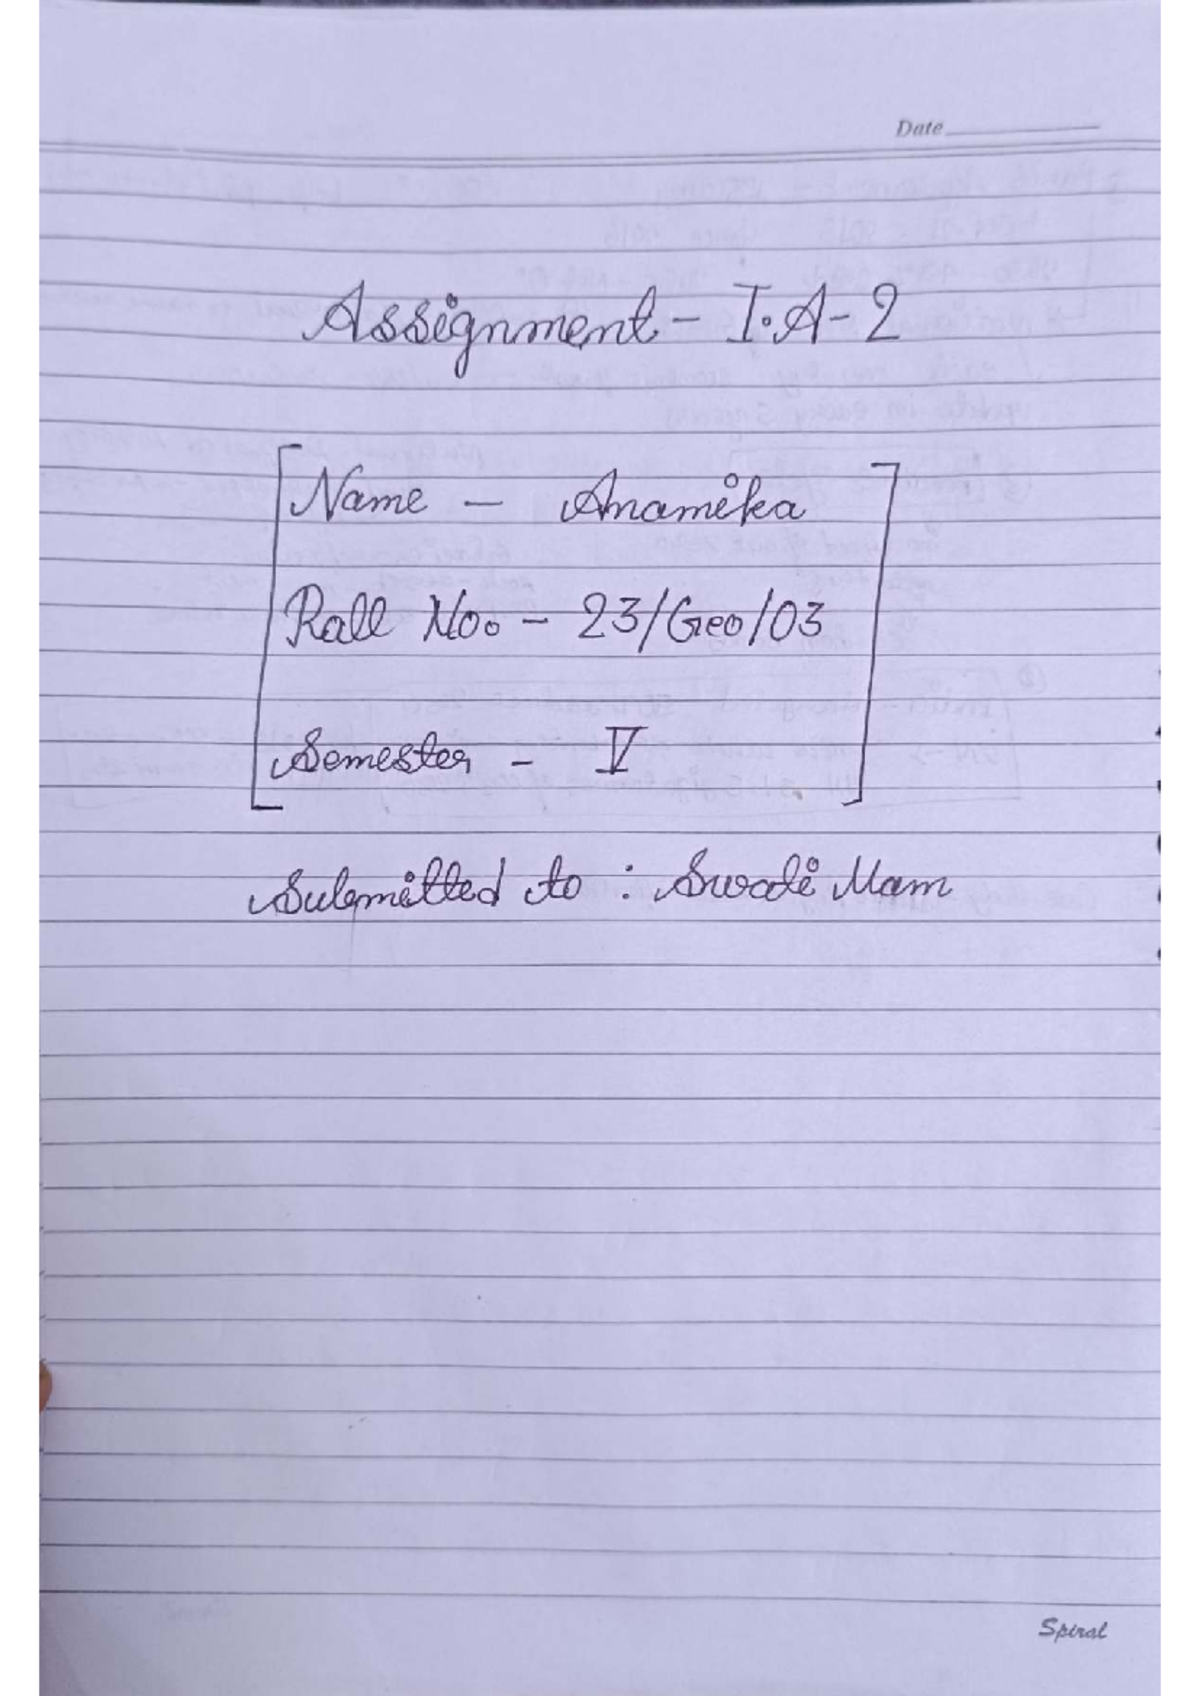 Date
Assignment - I.A-2
Name - Anamika
Roll No. - 23/Geo/03
Semester - V
Submitted to : Swati Mam
Spiral